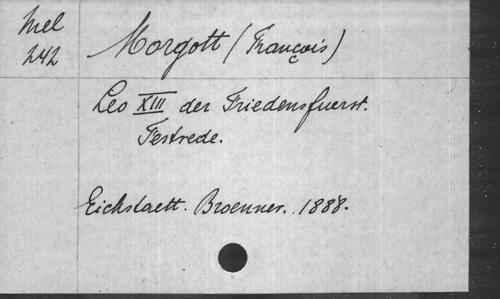 Mel
242
Morgott (François)
Leo XIII der Friedensfuerst.
Festrede.
Eichstaett. Broenner. 1888.